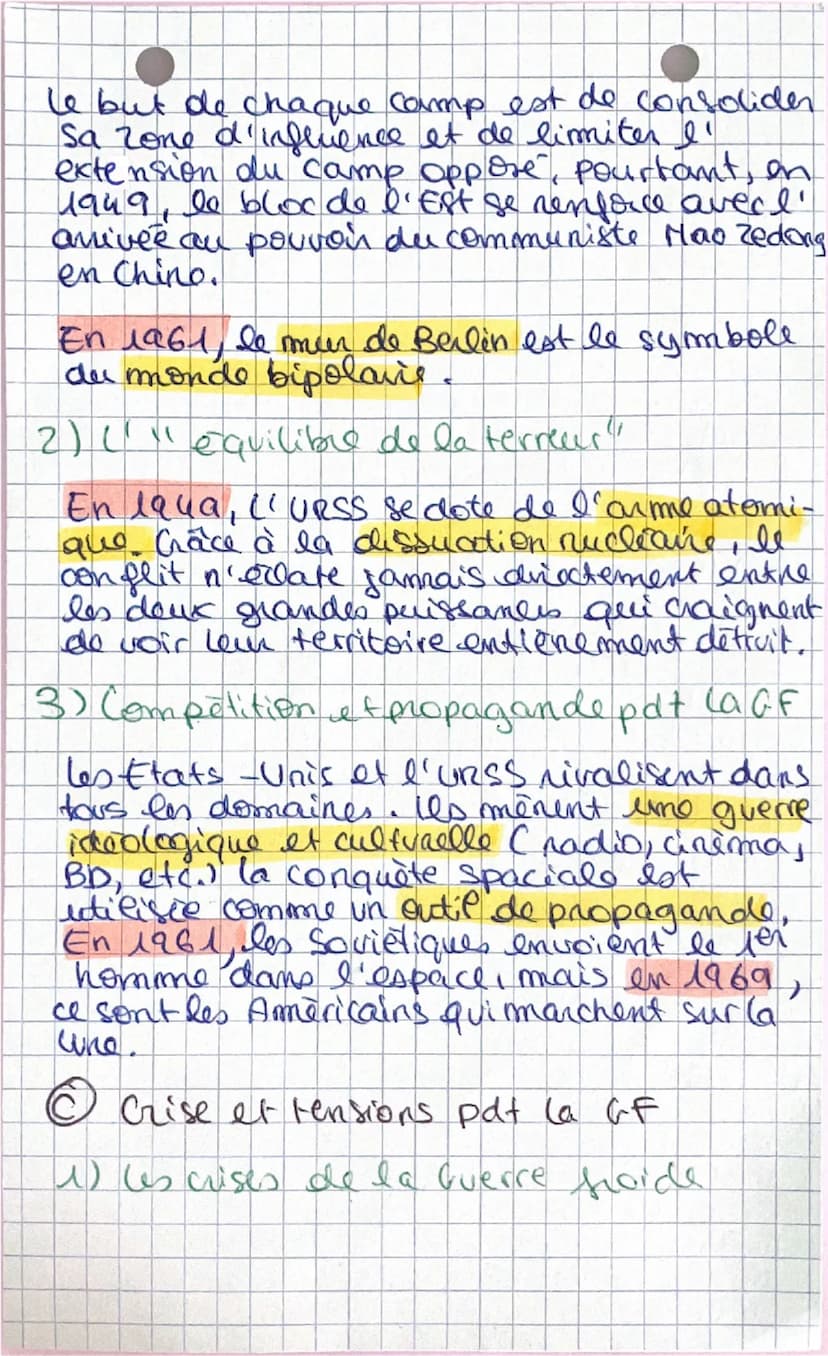 Le but de chaque camp est de consolider
sa zone d'influence et de limiter l'
extension du camp opposé, pourtant, en
1949, le bloc de l'Est se renforce avec l'
arrivée au pouvoir du communiste Mao Zedong
en Chine.
En 1961, le mur de Berlin est le symbole
du monde bipolaire.
2) L' "équilibre de la terreur"
En 1949, l'URSS se dote de l'arme atomi-
que. Grâce à la dissuation nucléaire, le
conflit n'éclate jamais directement entre
les deux grandes puissances qui craignent
de voir leur territoire entièrement détruit.
3) Compétition et propagande pdt la GF
Les Etats-Unis et l'URSS rivalisent dans
tous les domaines. Ils mènent une guerre
idéologique et culturelle (radio, cinéma,
BD, etc.) la conquête spaciale est
utilisée comme un outil de propagande.
En 1961, les Soviétiques envoient le 1er
homme dans l'espace, mais en 1969,
ce sont les Américains qui marchent sur la
lune.
C Crise et tensions pdt la GF
1) Les crises de la Guerre froide